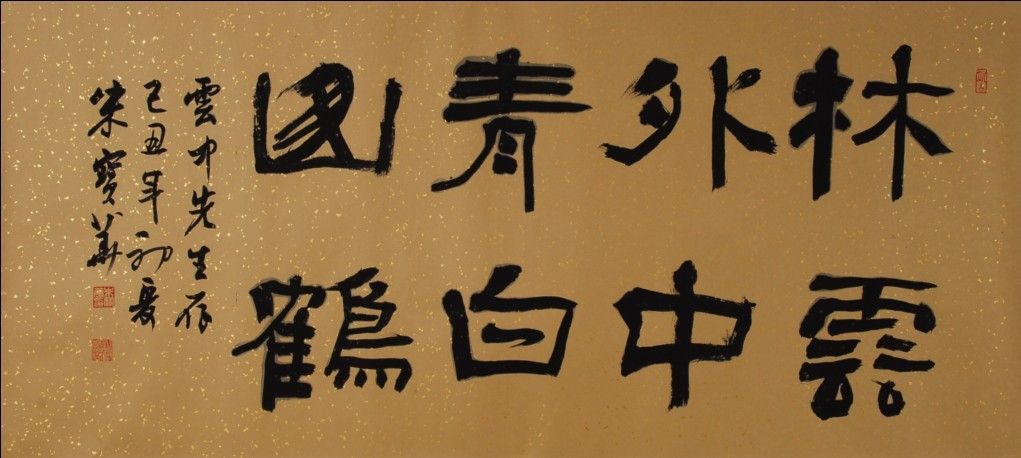 林外青
雲中白鶴
雲中先生存
己丑年初夏
朱寶華